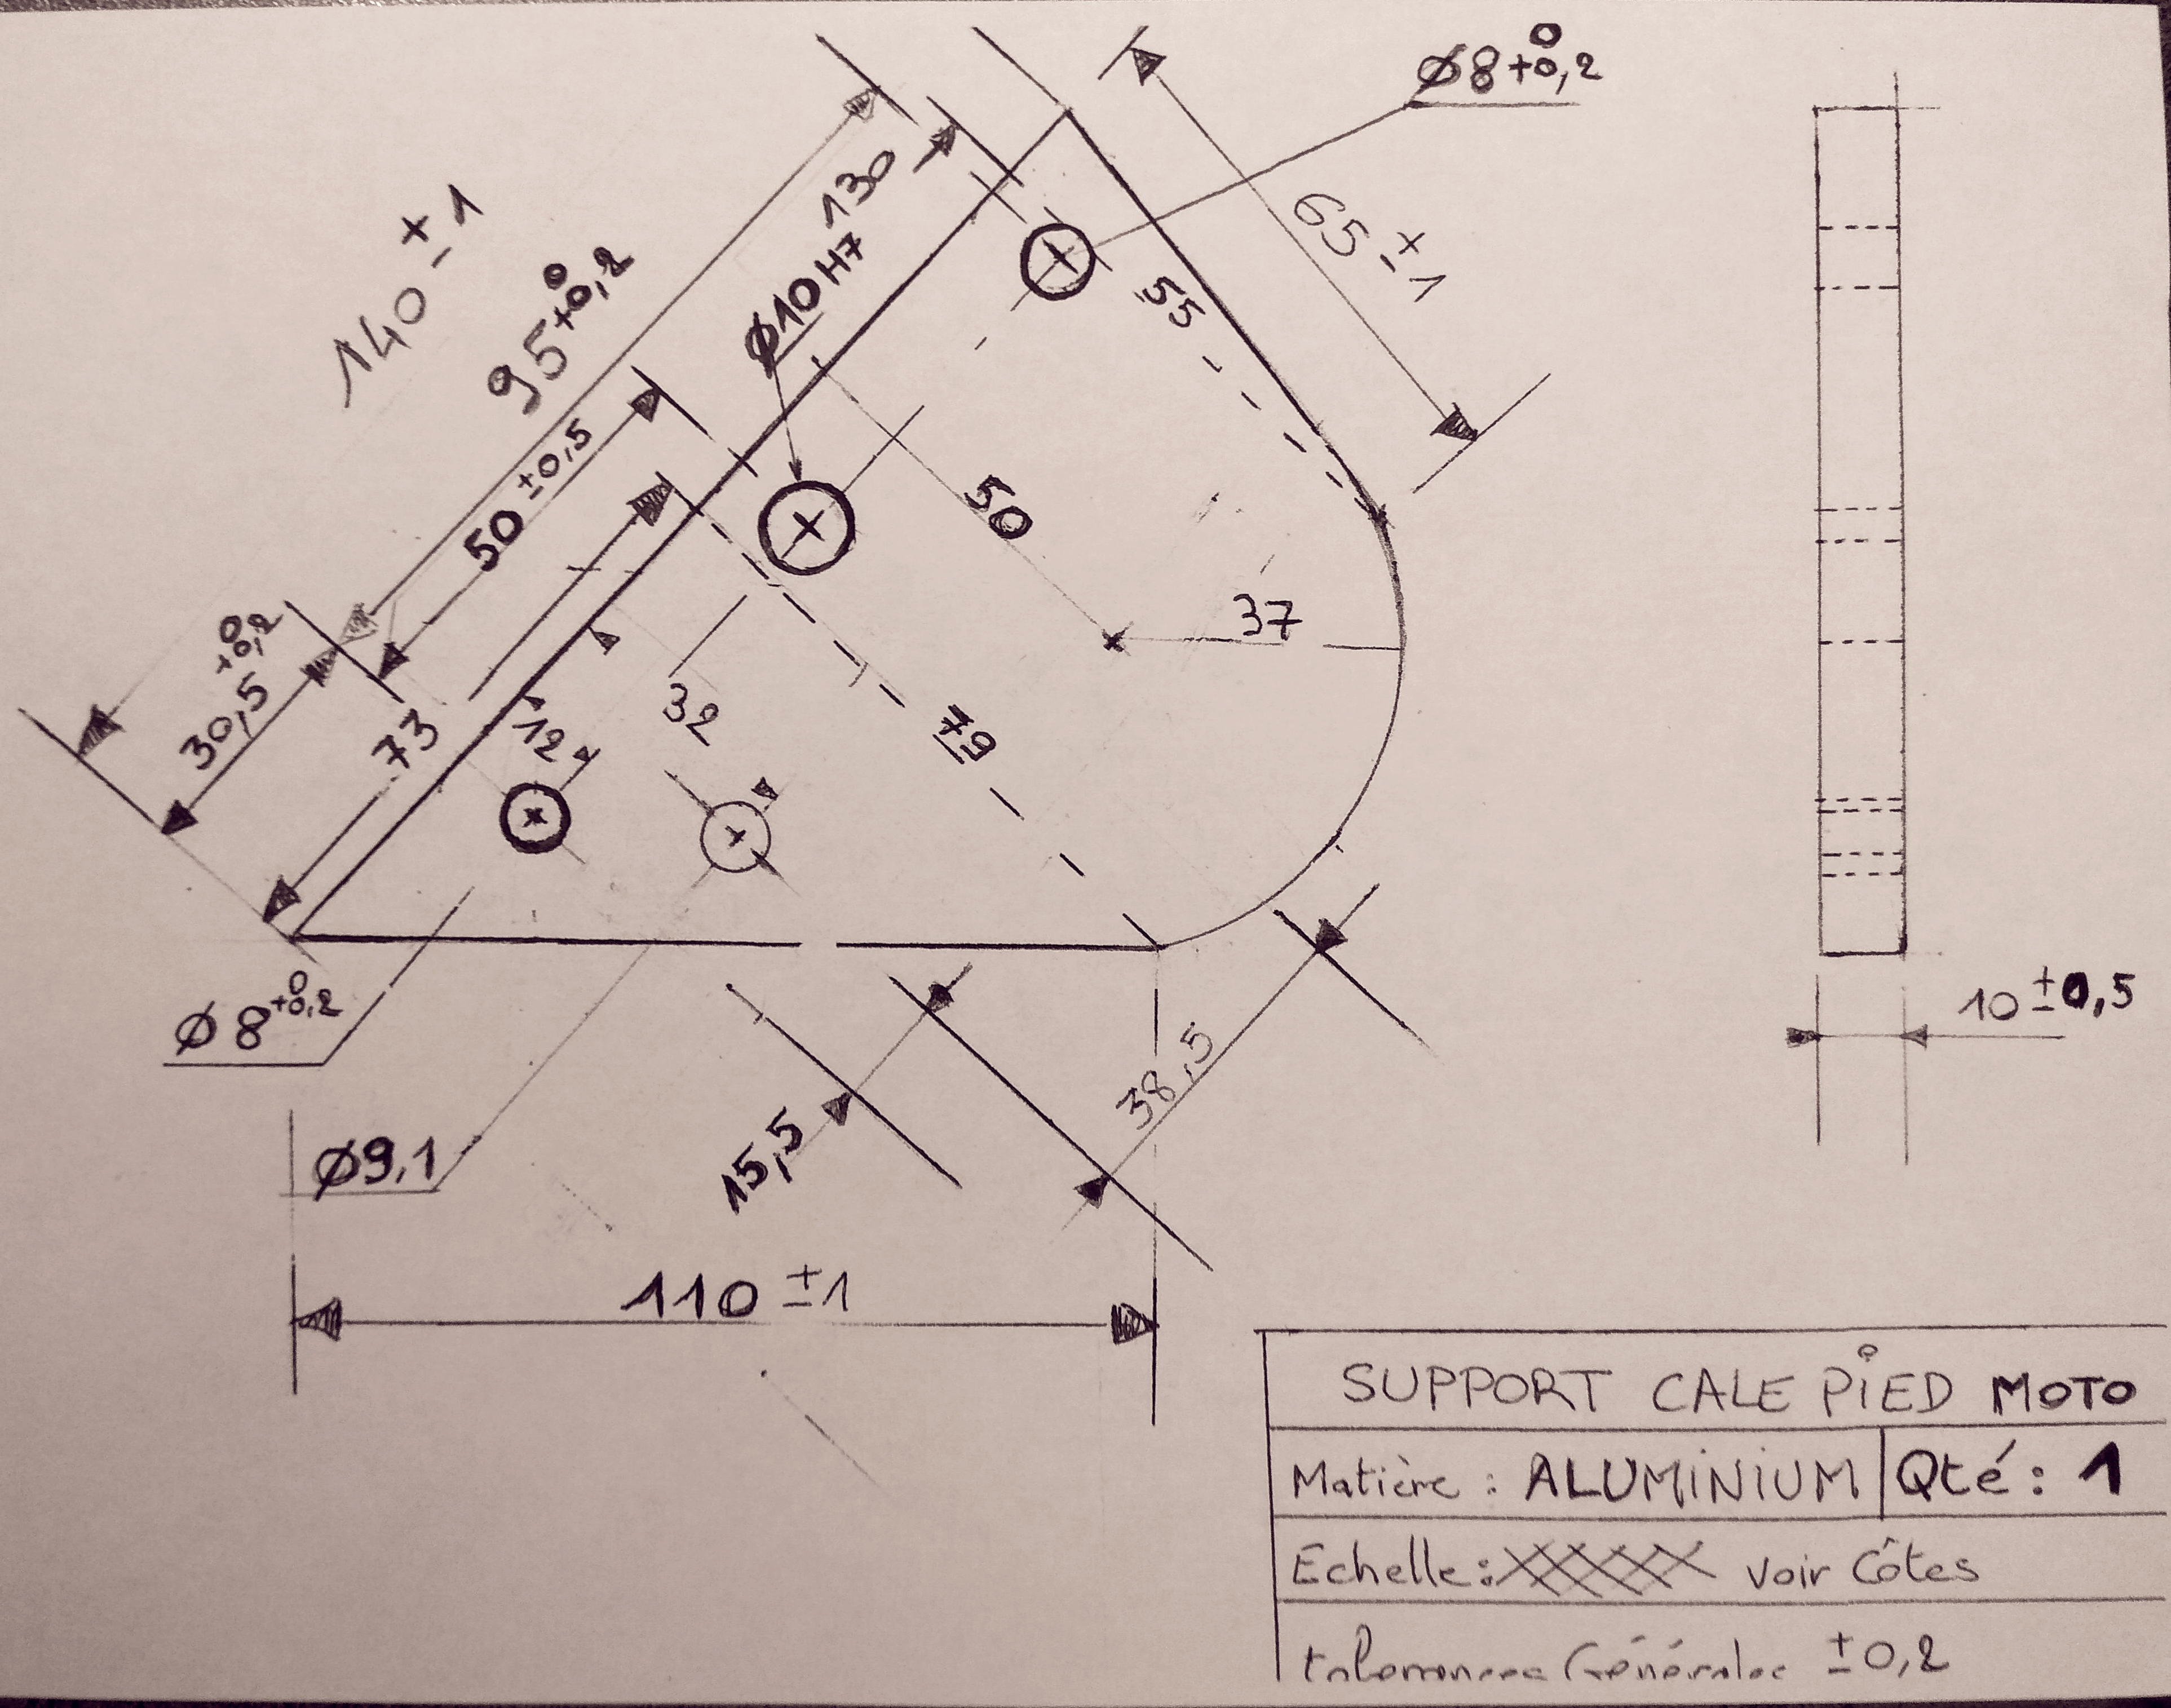 Ø8 +0,2 0
140 ± 1
130
65 ± 1
95 +0,2 0
Ø10 H7
55
50 ±0,5
50
37
30,5 +0,2 0
73
12
32
79
Ø8 +0,2 0
10 ±0,5
38,5
Ø9,1
15,5
110 ±1
SUPPORT CALE PiED MOTO
Matière : ALUMiNiUM Qté : 1
Echelle : voir Côtes
tolerances Générales ±0,2